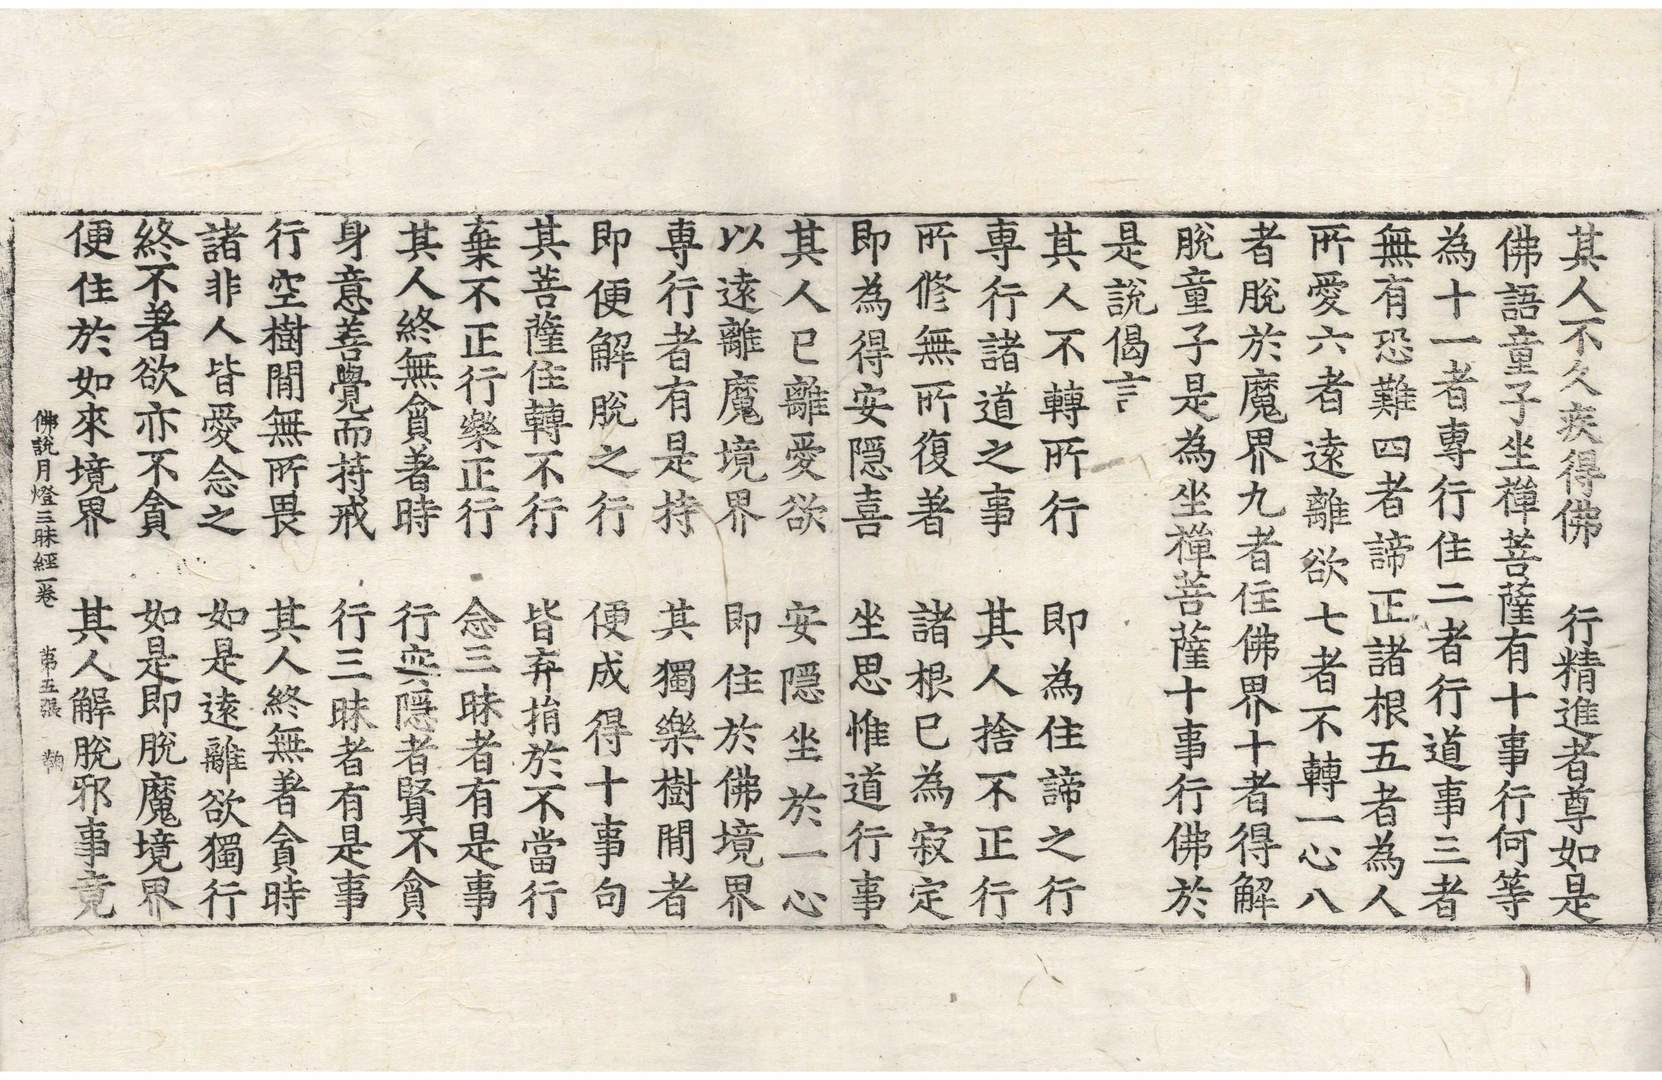 其人不久疾得佛　行精進者尊如是
佛語童子坐禪菩薩有十事行何等
為十一者專行住二者行道事三者
無有恐難四者諦正諸根五者為人
所愛六者遠離欲七者不轉一心八
者脫於魔界九者住佛界十者得解
脫童子是為坐禪菩薩十事行佛於
是說偈言
其人不轉所行　即為住諦之行
專行諸道之事　其人捨不正行
所修無所復著　諸根已為寂定
即為得安隱喜　坐思惟道行事
其人已離愛欲　安隱坐於一心
以遠離魔境界　即住於佛境界
專行者有是持　其獨樂樹間者
即便解脫之行　便成得十事句
其菩薩住轉不行　皆弃捐於不當行
棄不正行樂正行　念三昧者有是事
其人終無貪著時　行安隱者賢不貪
身意善覺而持戒　行三昧者有是事
行空樹間無所畏　其人終無著貪時
諸非人皆愛念之　如是遠離欲獨行
終不著欲亦不貪　如是即脫魔境界
便住於如來境界　其人解脫邪事竟
佛說月燈三昧經一卷　第五張